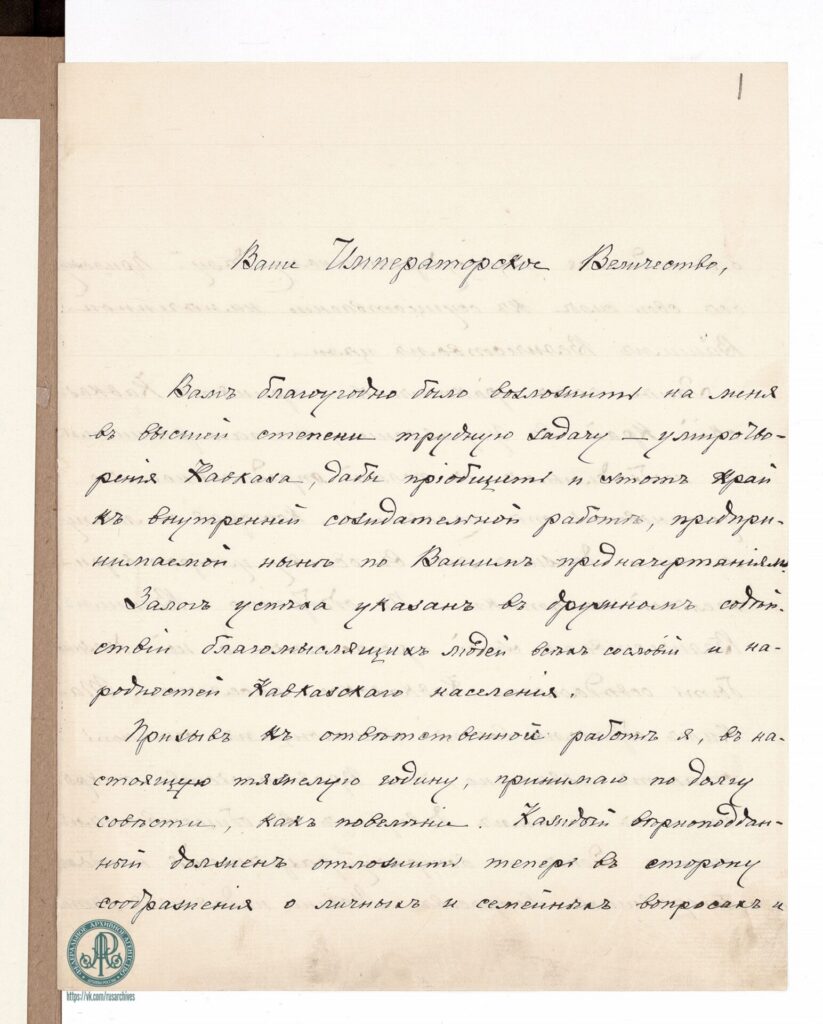 1
Ваше Императорское Величество,
Вамъ благоугодно было возложить на меня
въ высшей степени трудную задачу — умиротво-
ренія Кавказа, дабы пріобщить и этотъ край
къ внутренней созидательной работѣ, предпри-
нимаемой нынѣ по Вашимъ предначертаніямъ.
Залогъ успѣха указанъ въ дружномъ содѣй-
ствіи благомыслящихъ людей всѣхъ сословій и на-
родностей Кавказскаго населенія.
Призывъ къ отвѣтственной работѣ я, въ на-
стоящую тяжелую годину, принимаю по долгу
совѣсти, какъ повелѣніе. Каждый вѣрноподдан-
ный долженъ отложить теперь въ сторону
соображенія о личныхъ и семейныхъ вопросахъ и
ФЕДЕРАЛЬНОЕ АРХИВНОЕ АГЕНТСТВО
https://vk.com/rusarchives